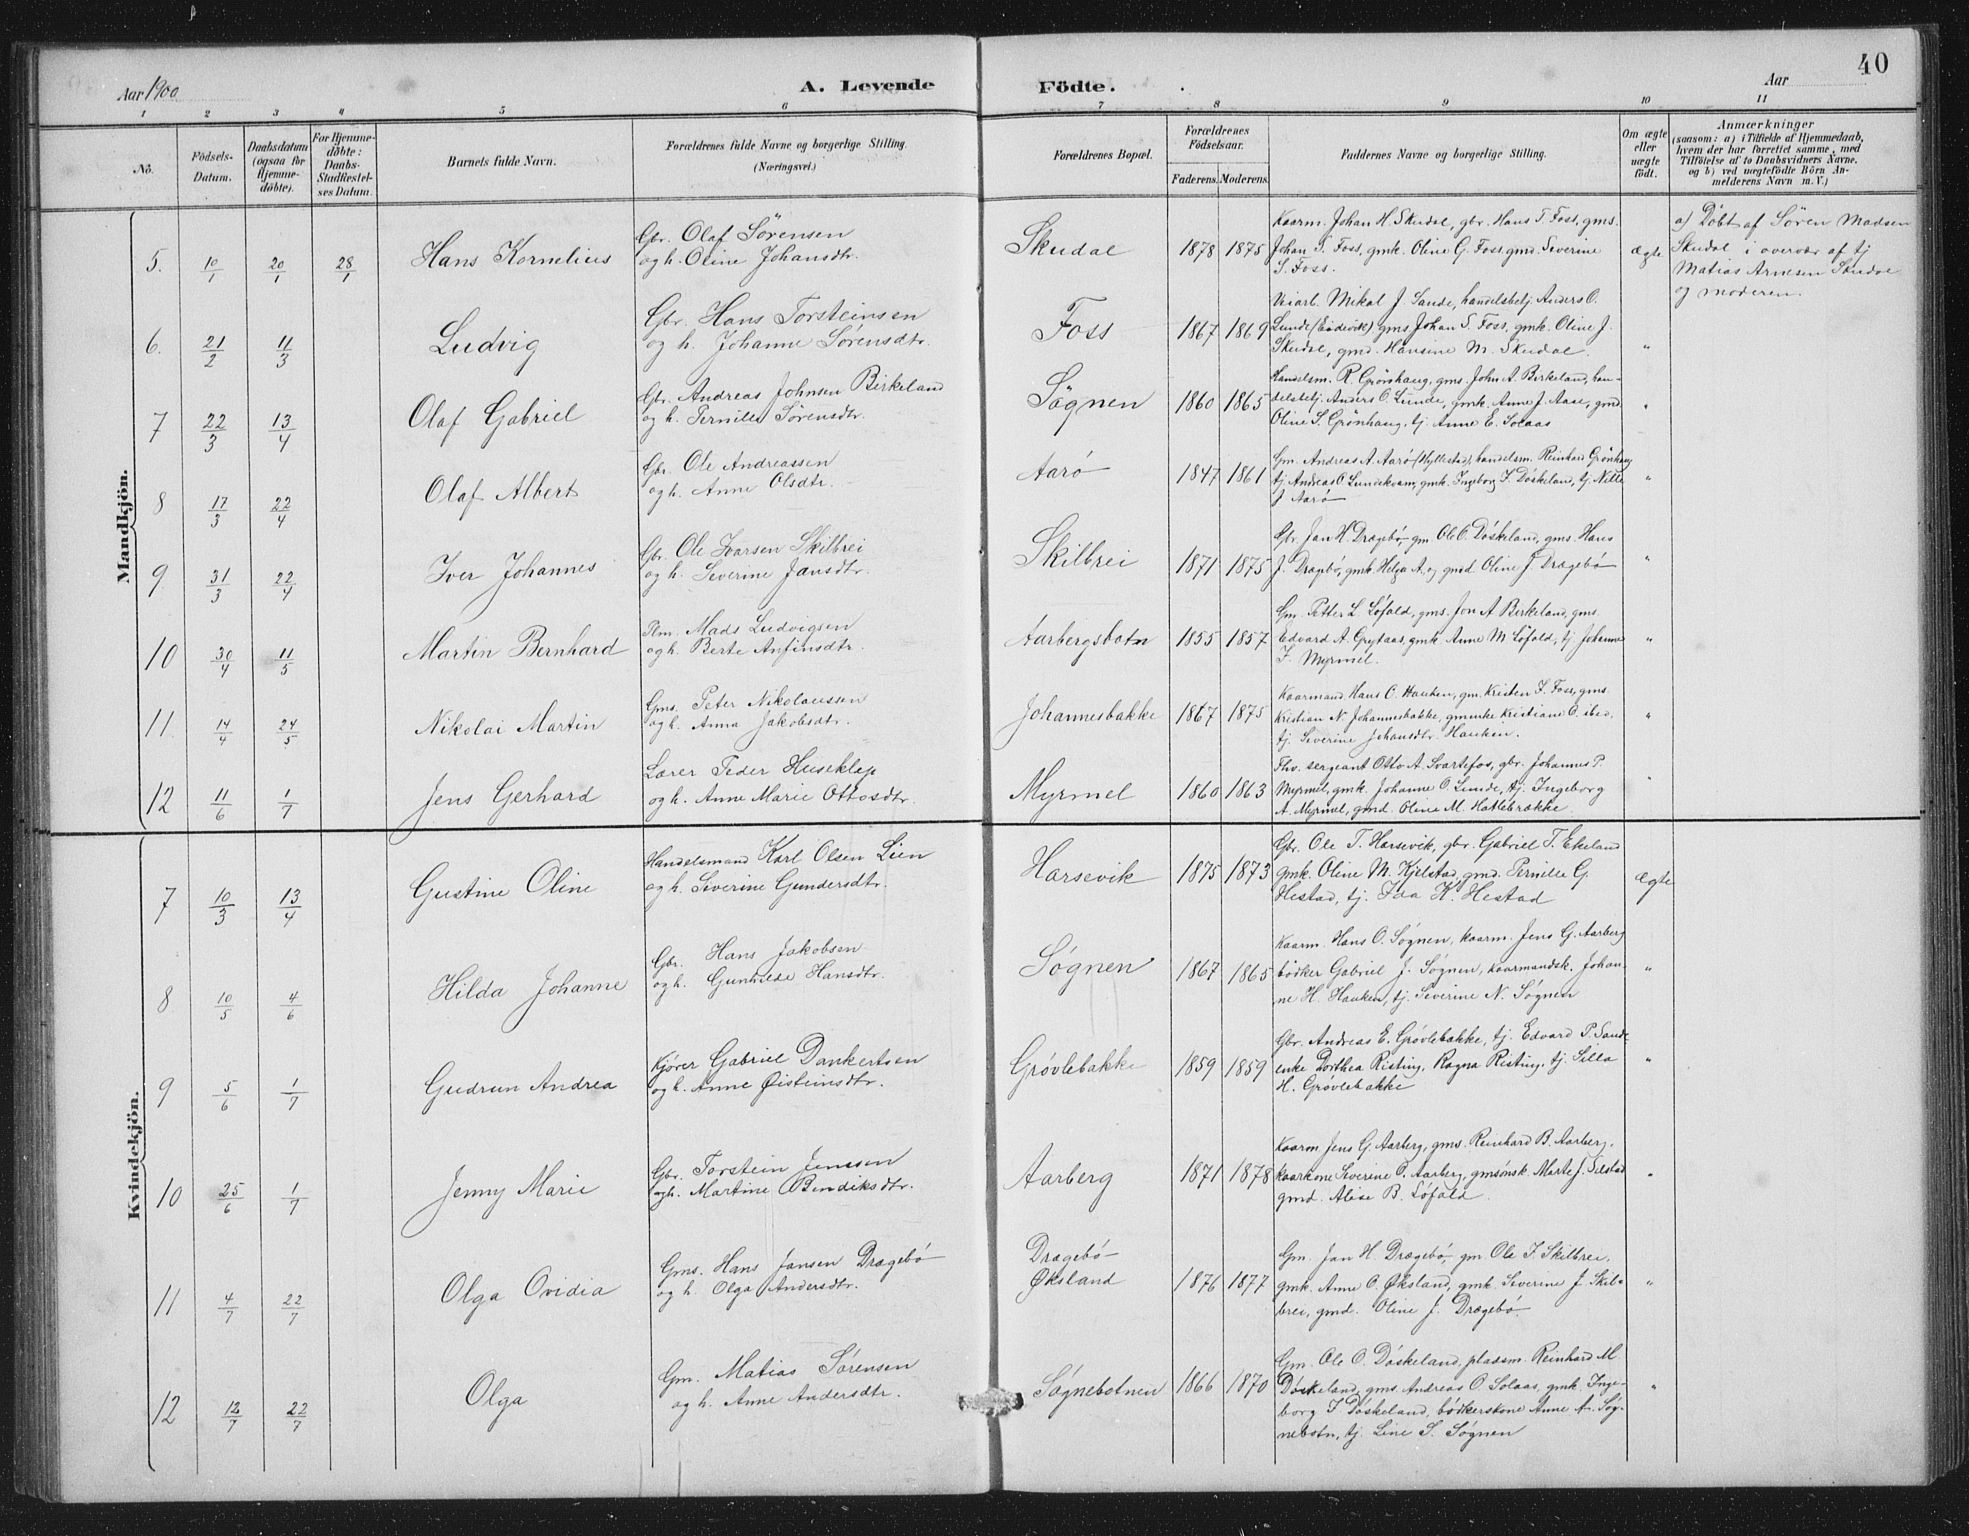 40
Aar 1900
A. Levende
Födte.
Aar
1 2 3 4 5 6 7 8 9 10 11
No.
Födsels-
Datum.
Daabsdatum
(ogsaa for
Hjemme-
döbte).
For Hjemme-
döbte:
Daabs-
Stadfæstel-
ses Datum.
Barnets fulde Navn.
Forældrenes fulde Navne og borgerlige Stilling.
(Næringsvei.)
Forældrenes Bopæl.
Forældrenes
Födselsaar.
Faderens. Moderens.
Faddernes Navne og borgerlige Stilling.
Om ægte
eller
uægte
födt.
Anmærkninger
(saasom: a) i Tilfælde af Hjemmedaab,
hvem der har forrettet samme, med
Tilföielse af to Daabsvidners Navne.
og b) ved uægtefödte Börn An-
melderens Navn m. V.)
Mandkjön.
5. 10/1 20/1 28/1 Hans Kornelius
Gbr. Olaf Sørensen
og h. Oline Johansdtr.
Skudal 1878 1875
Kaarm. Johan H. Skudal, gbr. Hans T. Foss, gms.
Johan S. Foss, gmk. Oline G. Foss, gmd. Severine
S. Foss.
ægte
a) Døbt af Søren Madsen
Skudal i overvær af tj
Matias Arnesen Skudal
og moderen.
6. 21/2 11/3 Ludvig
Gbr. Hans Torsteinsen
og h. Johanne Sørensdtr.
Foss 1867 1869
Mikal J. Sande, handelsbetj. Anders O.
Lunde (Eidevik) gms Johan S. Foss, gmk. Oline J.
Skudal, gmd. Hansine M. Skudal.
"
7 22/3 13/4 Olaf Gabriel
Gbr. Andreas Johnsen Birkeland
og h. Pernille Sørensdtr.
Søgnen 1860 1865
Handelsm. R. Grönhaug, gms. John A. Birkeland, han-
delsbetj. Anders O. Lunde, gmk. Anne J. Aase, gmd.
Oline S. Grönhaug, tj. Anne E. Solaas
"
8 17/3 22/4 Olaf Albert
Gbr. Ole Andreassen
og h. Anne Olsdtr.
Aarø 1847 1861
Gm. Andreas A. Aarø (Hyllestad), handelsm. Reinhard Grönhaug
tj Andreas O Lundekvam, gmk. Ingeborg I. Døskeland, tj. Nille
J. Aarø
"
9 31/3 22/4 Iver Johannes
Gbr. Ole Ivarsen Skilbrei
og h. Severine Jansdtr.
Skilbrei 1871 1875
Gbr. Jan H. Drægebø, gm Ole O. Døskeland, gms. Hans
J. Drægebø, gmk. Helga A. og gmd. Oline J Drægebø
"
10 30/4 11/5 Martin Bernhard
Plm. Mads Ludvigsen
og h. Berte Anfinsdtr.
Aarbergsbotn 1855 1857
Gm. Petter L. Løfald, gms. Jon A Birkeland, gms.
Edvard A. Grytaas, gmk Anne M. Løfald, tj. Johanne
I. Myrmel.
"
11 14/4 24/5 Nikolai Martin
Gms. Peter Nikolaussen
og h. Anna Jakobsdtr.
Johannesbakke 1867 1875
Kaarmand Hans O. Hauken, gm. Kristen I. Foss, gms.
Kristian N. Johannesbakke, gmenke Kristiane O. ibid,
tj. Severine Johansdtr. Hauken.
"
12 11/6 1/7 Jens Gerhard
Lærer Peder Huseklep
og h. Anne Marie Ottosdtr.
Myrmel 1860 1863
Fhv. sergeant Otto A. Svartefos, gbr. Johannes P.
Myrmel, gmk. Johanne O. Lunde, tj. Ingeborg
A. Myrmel, gmd. Oline M. Hatlebrække
"
Kvindekjön.
7 10/3 13/4 Gustine Oline
Handelsmand Karl Olsen Lien
og h. Severine Gundersdtr.
Harsevik 1875 1873
Gbr. Ole T. Harsevik, gbr. Gabriel T. Ekeland
gmk. Oline M. Kjelstad, gmd. Pernille G
Hestad, tj. Ida K. Hestad
ægte
8 10/5 4/6 Hilda Johanne
Gbr. Hans Jakobsen
og h. Gunhilde Hansdtr.
Søgnen 1867 1865
Kaarm. Hans O. Søgnen, kaarm. Jens G. Aarberg
bødker Gabriel J. Søgnen, kaarmandsk. Johan-
ne H. Hauken, tj. Severine N. Søgnen
"
9 5/6 1/7 Gudrun Andrea
Kjører Gabriel Dankertsen
og h. Anne Øisteinsdtr.
Grøvlebakke 1859 1859
Gbr. Andreas E. Grøvlebakke, tj. Edvard P. Sande
enke Dorthea Risting, Ragna Risting, tj. Silla
H. Grøvlebakke
"
10 25/6 1/7 Jenny Marie
Gbr. Torstein Jenssen
og h. Martine Bendiksdtr.
Aarberg 1871 1878
Kaarm Jens G. Aarberg, gms. Reinhard B. Aarberg,
kaarkone Severine O. Aarberg, gmsønsk. Marte J. Selstad
gmd. Alise B. Løfald.
"
11 4/7 22/7 Olga Ovidia
Gms. Hans Jansen Drægebø
og h. Olga Andersdtr.
Drægebø
Øksland 1876 1877
Gm. Jan H. Drægebø, gm. Ole I. Skilbrei,
gmk. Anne O. Øksland, gmk. Severine J. Skil-
brei, gmd. Oline J. Drægebø
"
12 12/7 22/7 Olga
Gm. Matias Sørensen
og h. Anne Andersdtr.
Søgnebotnen 1866 1870
Gm. Ole O. Døskeland, pladsm. Reinhard M.
Døskeland, gms. Andreas O. Solaas, gmk. Inge-
borg I. Døskeland, bødkerskone Anne A. Søg-
nebotn, tj. Line S. Søgnen
"